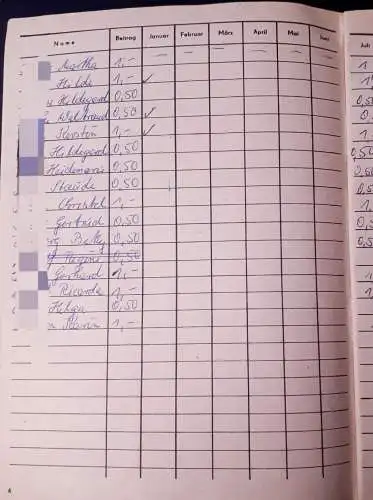 Name Beitrag Januar Februar März April Mai Juni Juli
Martha 1,- 1
Hilde 1,- ✓ 1
Hildegard 0,50 0,5
Waltraud 0,50 ✓ 0,
Kerstin 1,- ✓ 1
Hildegard 0,50 0,50
Heidemarie 0,50 0,50
0,50 0,5
Christel 1,- 1.
Gertrud 0,50 0,5
Betty 0,50 0,5
Regine 0,50
Gerhard 1,- 1
Ricarda 1,- 1
Helga 0,50
Karin 1,-
4